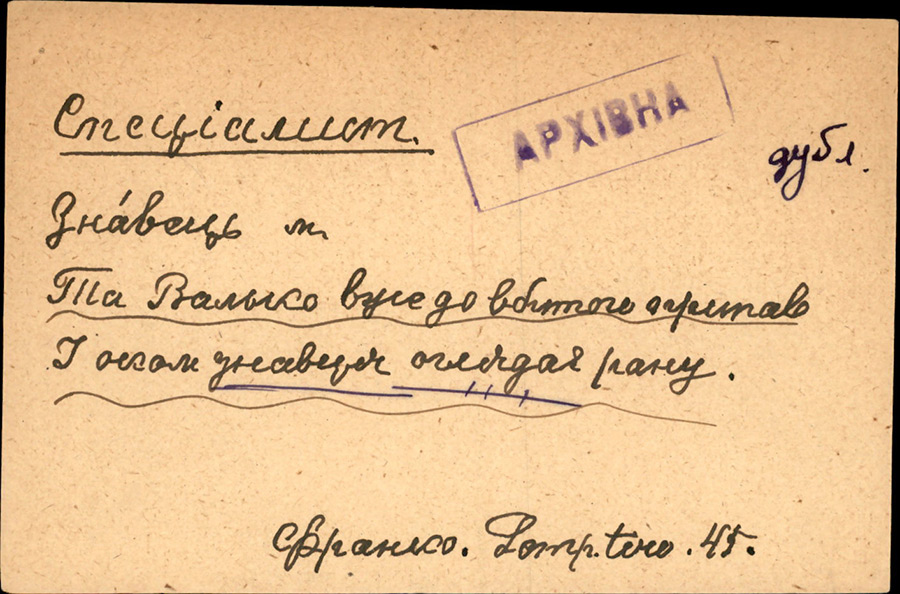 Спеціялист.
АРХІВНА
дубл.
Зна́вець м.
Та Валько вже до вбитого припав
І оком знавця оглядає рану.
Франко. 45.